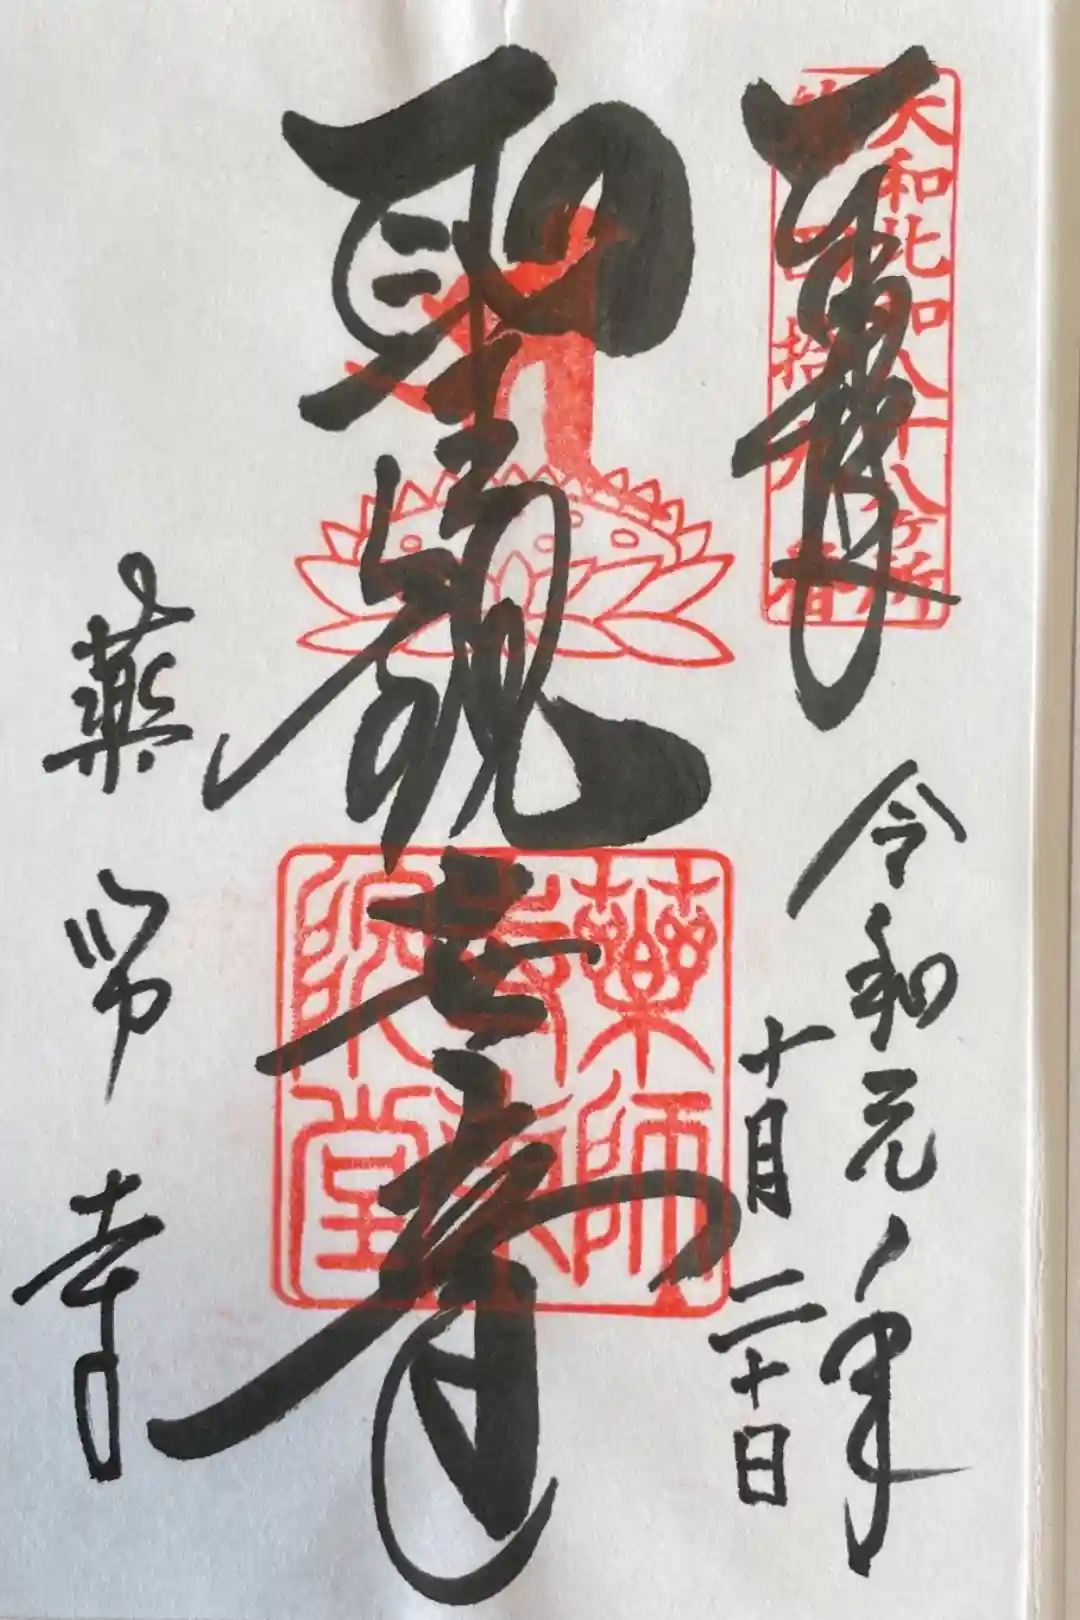 奉拝
大和北部八十八ヶ所
令和元年
十月二十日
聖観世音
藥師寺東院堂
藥師寺